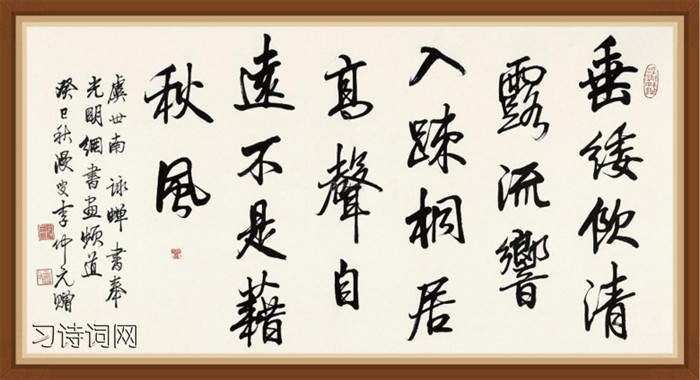 垂緌飲清
露流響
入踈桐居
高聲自
遠不是藉
秋風
虞世南 詠蟬 書奉
光明網書畫頻道
癸巳秋漫叟李仲元贈
习诗词网